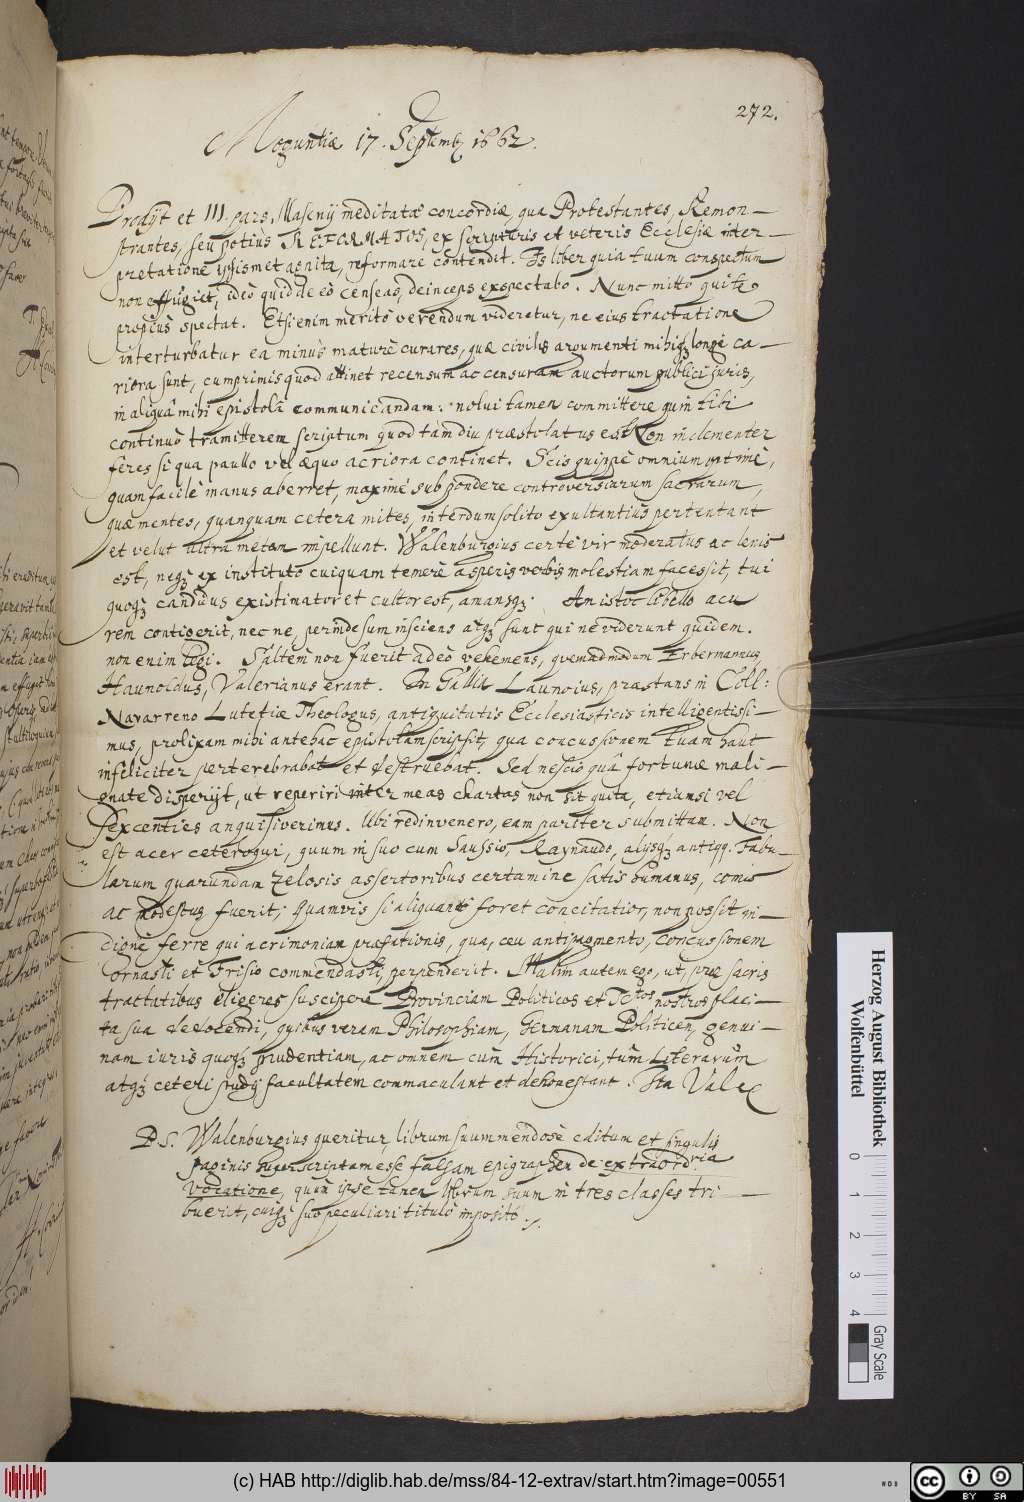 272.
Moguntiæ 17. Septemb 1662.
Prodijt et III. pars, Masenij meditatæ concordiæ, qua Protestantes, Remon—
strantes, seu potius REFORMATOS, ex scripturis et veteris Ecclesiæ inter—
pretatione ipsismet agnita, reformare contendit. Is liber quia tuum conspectum
non effugiet, ideò quid de eò censeas, deinceps exspectabo. Nunc mitto qui te
propius spectat. Etsi enim meritò verendum videretur, ne eius tractatione
interturbatur ea minùs maturè curares, quæ civilis argumenti mihiq; longè ca—
riora sunt, cumprimis quod attinet recensum ac censuram auctorum publici juris,
in aliquâ mihi epistolâ communicandam: nolui tamen committere quin tibi
continuò tramitterem scriptum quod tam diu præstolatus es. Non inclementer
feres si qua paullo vel æquo acriora continet. Scis quippè omnium optimè,
quam facilè manus aberret, maximè sub pondere controversiarum sacrarum,
quæ mentes, quanquam cetera mites, interdum solito exultantius pertentant
et velut ultra metam impellunt. Walenburgius certè vir moderatus ac lenis
est, neq; ex instituto cuiquam temerè asperis verbis molestiam facessit, tui
quoq; candidus existimator et cultor est, amansq;. An istoc libello acu
rem contigerit, nec ne, perinde sum insciens atq; sunt qui ne viderunt quidem.
non enim legi. Saltem non fuerit adeò vehemens, quemadmodum Erbermannus,
Haunoldus, Valerianus erant. In Gallia Launoius, præstans in Coll:
Navarreno Lutetiæ Theologus, antiquitatis Ecclesiasticis intelligentissi—
mus, prolixam mihi antehac epistolam scripsit, qua concussionem tuam haut
infeliciter perterebrabat et destruebat. Sed nescio quâ fortunæ mali—
gnate disperijt, ut reperiri inter meas chartas non sit quita, etiamsi vel
sexcenties anquisiverimus. Ubi redinvenero, eam pariter submittam. Non
est acer ceteroqui, quum in suo cum Saussio, Raynaudo, alysq; antiqq. Tabu—
larum quarundam zelosis assertoribus certamine satis humanus, comis
ac modestus fuerit; Quamvis si aliquantò foret concitatior, non possit in—
dignè ferre qui acrimoniam præfationis, qua, ceu antipagmento, concussionem
ornasti et Frisio commendasti, perpenderit. Malim autem ego, ut, præ sacris
tractatibus eligeres suscipere Provinciam Politicos et ICtos nostros placi—
ta sua dedocendi, quibus veram Philosophiam, Germanam Politicen, genui—
nam iuris quoq; prudentiam, ac omnem cùm Historici, tùm Literarum
atq; ceteri studij facultatem commaculant et dehonestant. Ita Vale
PS. Walenburgius queritur, librum suum mendosè editum et singulis
paginis superscriptam esse falsam epigraphen de extraordria
vocatione, quùm ipse tamen librum suum in tres classes tri—
buerit, cuiq; suo peculiari titulò impositô.
Herzog August Bibliothek
Wolfenbüttel
0 1 2 3 4
Gray Scale
(c) HAB http://diglib.hab.de/mss/84-12-extrav/start.htm?image=00551
cc BY SA